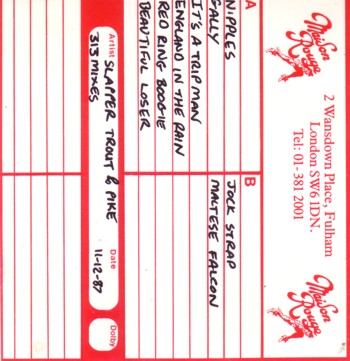 Maison Rouge
2 Wansdown Place, Fulham
London SW6 1DN.
Tel: 01-381 2001
Maison Rouge
A
NIPPLES
SALLY
IT'S A TRIP MAN
ENGLAND IN THE RAIN
RED RING BOOGIE
BEAUTIFUL LOSER
B
JOCK STRAP
MALTESE FALCON
Artist SLAPPER TROUT & PIKE
313 MIXES
Date
11-12-87
Dolby